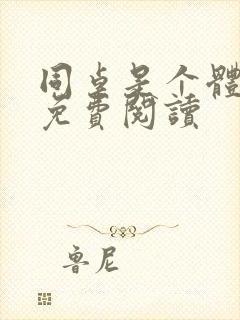 同桌是个體
免費閱讀
魯尼